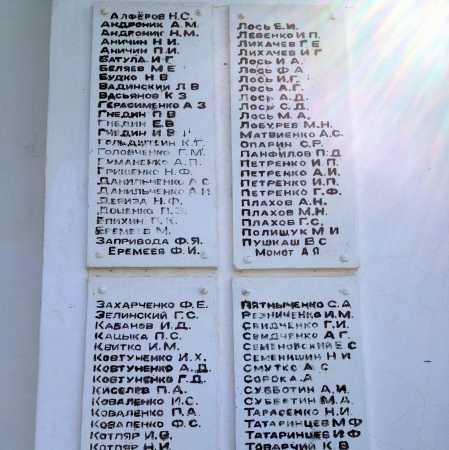 Алфёров Н.С.
Андроник А.М.
Андроник Н.М.
Аничин Н.И.
Аничин П.И.
Батула И.Г
Беляев М.Е
Будко Н В
Вадинский Л В
Васьянов К З
Герасименко А З
Гнедин П В
Гнедин Е.В
Гнедин И.В
Гольдштейн К.Г.
Головченко Г.М.
Гуманенко А.П.
Грищенко Н.Ф.
Данильченко А С
Данильченко А И
Девиза Н.Ф.
Доценко П.З.
Епихин П.К.
Еремеев М.
Запривода Ф.Я.
Еремеев Ф.И.
Лось Е.И.
Левенко И П.
Лихачев Г Е
Лихачев И Г
Лось И А.
Лось Ф А
Лось И.Г
Лось А.Г.
Лось А.Д.
Лось С.Д.
Лось М А,
Лобурев М.Н.
Матвиенко А.С.
Опарин С.Р.
Панфилов П Д
Петренко И.П.
Петренко А.И.
Петренко И.П
Петренко Г.Ф.
Плахов А.Н.
Плахов М.Н.
Плахов Г.С.
Полищук М И
Пушкаш В С
Момот А Я
Захарченко Ф.Е.
Зелинский Г.С.
Кабанов И.Д.
Кацыка П.С.
Квитко И.М.
Ковтуненко И.Х.
Ковтуненко А.Д.
Ковтуненко Г.Д.
Киселев П.А.
Коваленко И.С.
Коваленко П.А.
Коваленко Ф.С.
Котляр И.В.
Котляр Н.И.
Пятныченко С.А
Резниченко И.М.
Свидченко Г.И.
Свидченко А Г.
Семеновский Е С
Семенишин Н И
Смутко А С
Сорока А
Субботин А.И.
Субботин М.Д.
Тарасенко Н.И.
Татаринцев М Ф
Татаринцев И Ф
Товарчий К.В